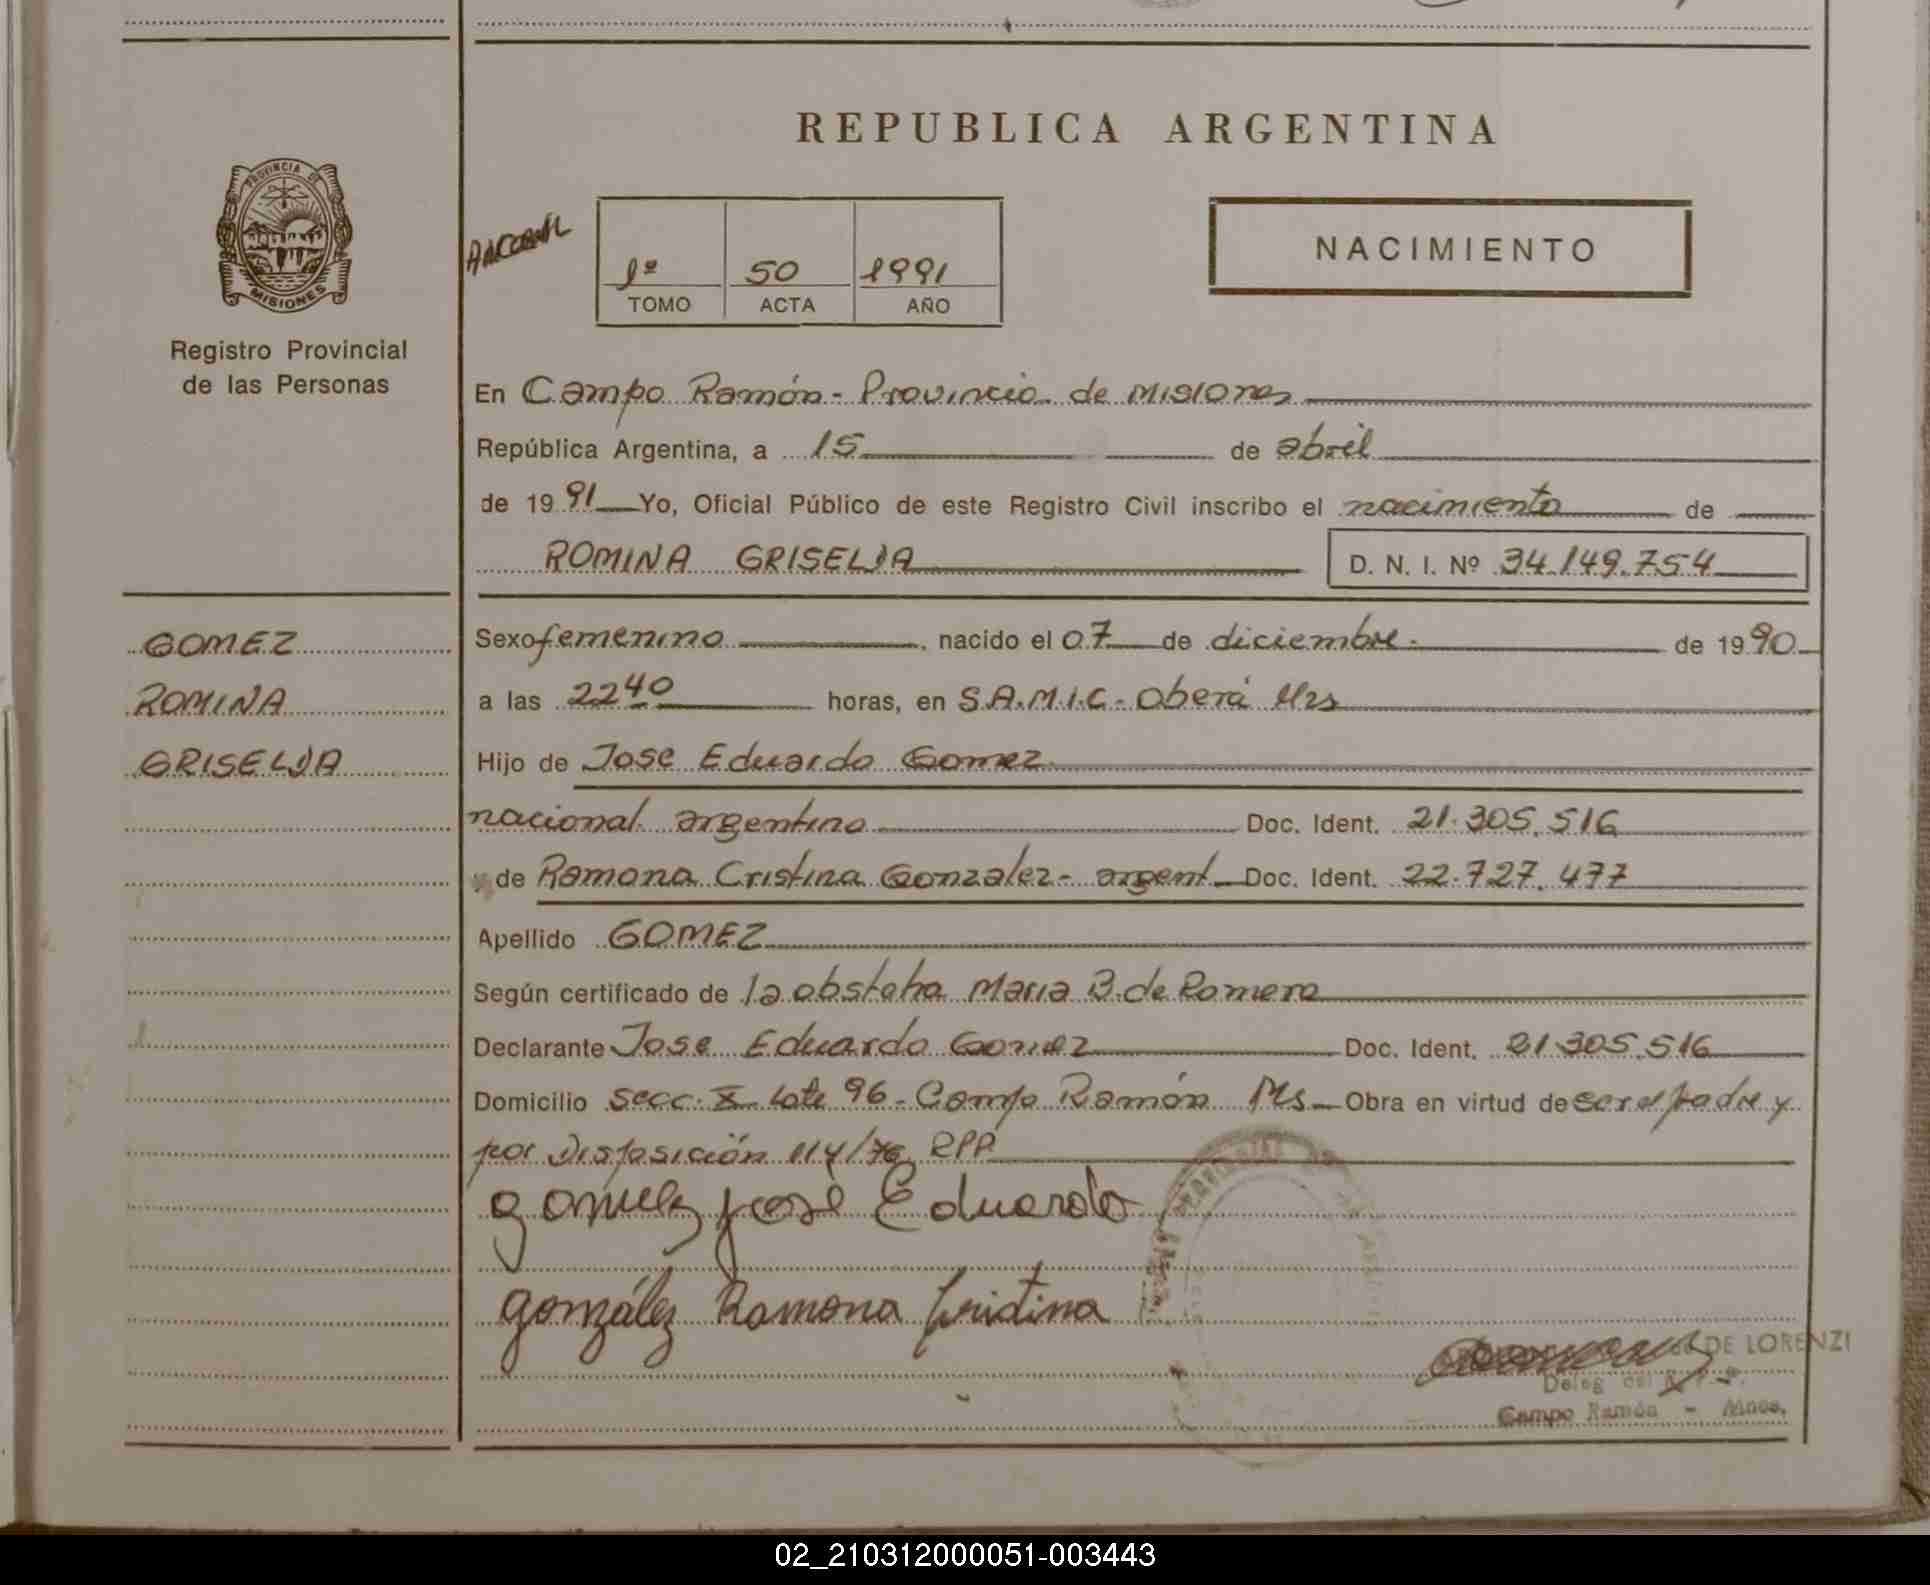 REPUBLICA ARGENTINA
PROVINCIA DE
MISIONES
Registro Provincial
de las Personas
1º 50 1991
TOMO ACTA AÑO
NACIMIENTO
En Campo Ramón - Provincia de Misiones
República Argentina, a 15 de abril
de 1991 Yo, Oficial Público de este Registro Civil inscribo el nacimiento de
ROMINA GRISELDA D. N. I. Nº 34.149.754
GOMEZ
ROMINA
GRISELDA
Sexo femenino, nacido el 07 de diciembre. de 1990
a las 22 40 horas, en S.A.M.I.C - Oberá Mrs
Hijo de Jose Eduardo Gomez
nacional. argentino Doc. Ident. 21.305.516
de Ramona Cristina Gonzalez - argent. Doc. Ident. 22.727.477
Apellido GOMEZ
Según certificado de la obstetra Maria B. de Romero
Declarante Jose Eduardo Gomez Doc. Ident. 21.305.516
Domicilio Secc. X Lote 96 - Campo Ramón Ms Obra en virtud de ser el padre y
por Disposición 114/76 RPP
Gomez José Eduardo
González Ramona Cristina
DE LORENZI
Deleg. del R. P. P.
Campo Ramón - Mnes.
02_210312000051-003443